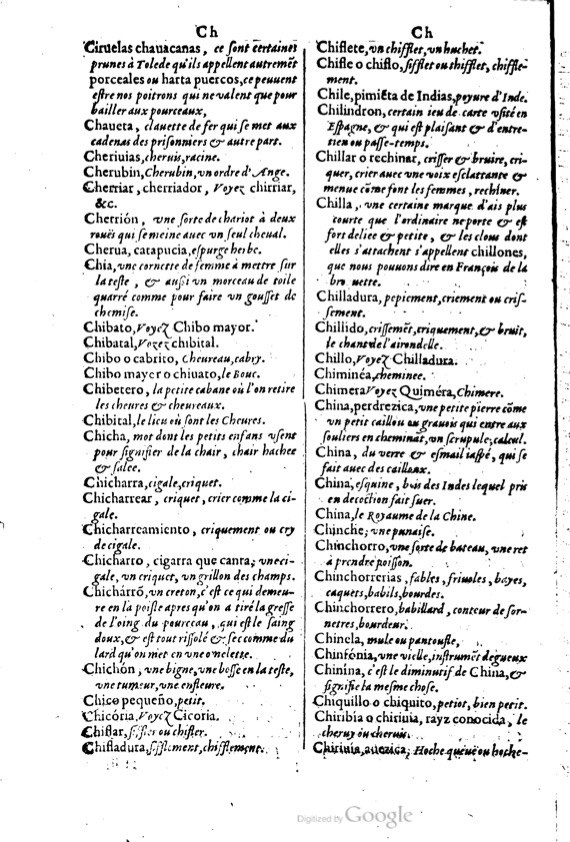 Ch
Ciruelas chauacanas, ce sont certaines
prunes à Tolede qu'ils appellent autremẽt
porceales ou harta puercos, ce peuuent
estre nos poitrons qui ne valent que pour
bailler aux pourceaux,
Chaueta, clauette de fer qui se met aux
cadenas des prisonniers & autre part.
Cheriuias, cheruis, racine.
Cherubin, Cherubin, vn ordre d'Ange.
Cherriar, cherriador, Voyez chirriar,
&c.
Cherrión, vne sorte de chariot à deux
rouës qui se meine auec vn seul cheual.
Cherua, catapucia, espurge herbe.
Chía, vne cornette de femme à mettre sur
la teste, & aussi vn morceau de toile
quarré comme pour faire vn gousset de
chemise.
Chibato, Voyez Chibo mayor.
Chibatal, Voyez chibital.
Chibo o cabrito, Cheureau, cabry.
Chibo mayer o chiuato, le Bouc.
Chibetero, la petite cabane où l'on retire
les cheures & cheureaux.
Chibital, le lieu où sont les Cheures.
Chicha, mot dont les petits enfans vsent
pour signifier de la chair, chair hachee
& salee.
Chicharra, cigale, criquet.
Chicharrear, criquet, crier comme la ci-
gale.
Chicharreamiento, criquement ou cry
de cigale.
Chicharro, cigarra que canta; vne ci-
gale, vn criquet, vn grillon des champs.
Chichárrõ, vn creton, c'est ce qui demeu-
re en la poisle apres qu'on a tiré la gresse
de l'oing du pourceau, qui est le saing
doux, & est tout rissolé & sec comme du
lard qu'on met en vne omelette.
Chichón, vne bigne, vne bosse en la teste,
vne tumeur, vne enfleure.
Chico pequeño, petit.
Chicória, Voyez Cicoria.
Chiflar, siffler ou chifler.
Chifladura, sifflement, chifflement.
Ch
Chiflete, vn chifflet, vn huchet.
Chifle o chiflo, sifflet ou shifflet, chiffle-
ment.
Chile, pimiẽta de Indias, poyure d'Inde.
Chilindron, certain ieu de carte vsité en
Espagne, & qui est plaisant & d'entre-
tien ou passe-temps.
Chillar o rechinar, crisser & bruire, cri-
quer, crier auec vne voix esclattante &
menue cõme font les femmes, rechiner.
Chilla, vne certaine marque d'ais plus
courte que l'ordinaire ne porte & est
fort deliee & petite, & les clous dont
elles s'attachent s'appellent chillones,
que nous pouuons dire en François de la
brouuette.
Chilladura, pepiement, criement ou cris-
sement.
Chillido, crissemẽt, criquement, & bruit,
le chant de l'airondelle.
Chillo, Voyez Chilladura.
Chiminéa, cheminee.
Chimera Voyez Quiméra, Chimere.
China, perdrezica, vne petite pierre cõme
vn petit caillou ou grauois qui entre aux
souliers en cheminãt, vn scrupule, calcul.
China, du verre & esmail iaspé, qui se
fait auec des cailloux.
China, esquine, bois des Indes lequel pris
en decoction fait suer.
China, le Royaume de la Chine.
Chinche, vne punaise.
Chinchorro, vne sorte de bateau, vne ret
à prendre poisson.
Chinchorrerias, fables, friuoles, bayes,
caquets, babils, bourdes.
Chinchorrero, babillard, conteur de sor-
netres, bourdeur.
Chinela, mule ou pantoufle,
Chinfónia, vne vielle, instrumẽt de gueux
Chinina, c'est le diminutif de China, &
signifie la mesme chose.
Chiquillo o chiquito, petiot, bien petit.
Chiribia o chiriuia, rayz conocida, le
cheruy ou cheruis.
Chiriuia, auezica, Hoche queuë ou hoche-
Digitized by Google